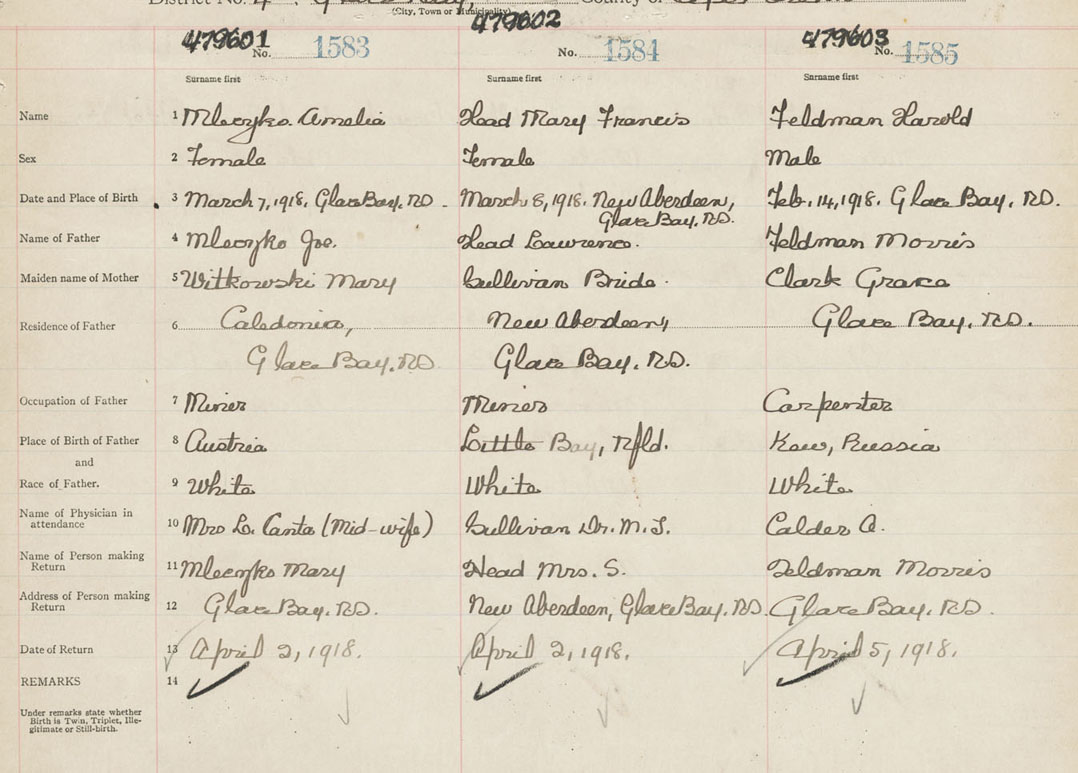 District No. 4
(City, Town or Municipality)
479601 479602 479603
No. 1583 No. 1584 No. 1585
Surname first Surname first Surname first
Name 1 Mleczko Amelia Head Mary Francis Feldman Harold
Sex 2 Female Female Male
Date and Place of Birth 3 March 7, 1918, Glace Bay, RD. March 8, 1918. New Aberdeen, Feb. 14, 1918. Glace Bay, RD.
Glace Bay, RD.
Name of Father 4 Mleczko Joe. Head Lawrence. Feldman Morris
Maiden name of Mother 5 Witkowski Mary Sullivan Bride. Clark Grace
Residence of Father 6 Caledonia, New Aberdeen, Glace Bay, RD.
Glace Bay, RD. Glace Bay, RD.
Occupation of Father 7 Miner Miner Carpenter
Place of Birth of Father 8 Austria Little Bay, Nfld. Kow, Russia
and
Race of Father. 9 White White White
Name of Physician in
attendance 10 Mrs Le Canta (Mid-wife) Sullivan Dr. M. T. Calder A.
Name of Person making
Return 11 Mleczko Mary Head Mrs. S. Feldman Morris
Address of Person making
Return 12 Glace Bay, RD. New Aberdeen, Glace Bay, RD. Glace Bay, RD.
Date of Return 13 April 2, 1918. April 2, 1918. April 5, 1918.
REMARKS 14
Under remarks state whether
Birth is Twin, Triplet, Ille-
gitimate or Still-birth.